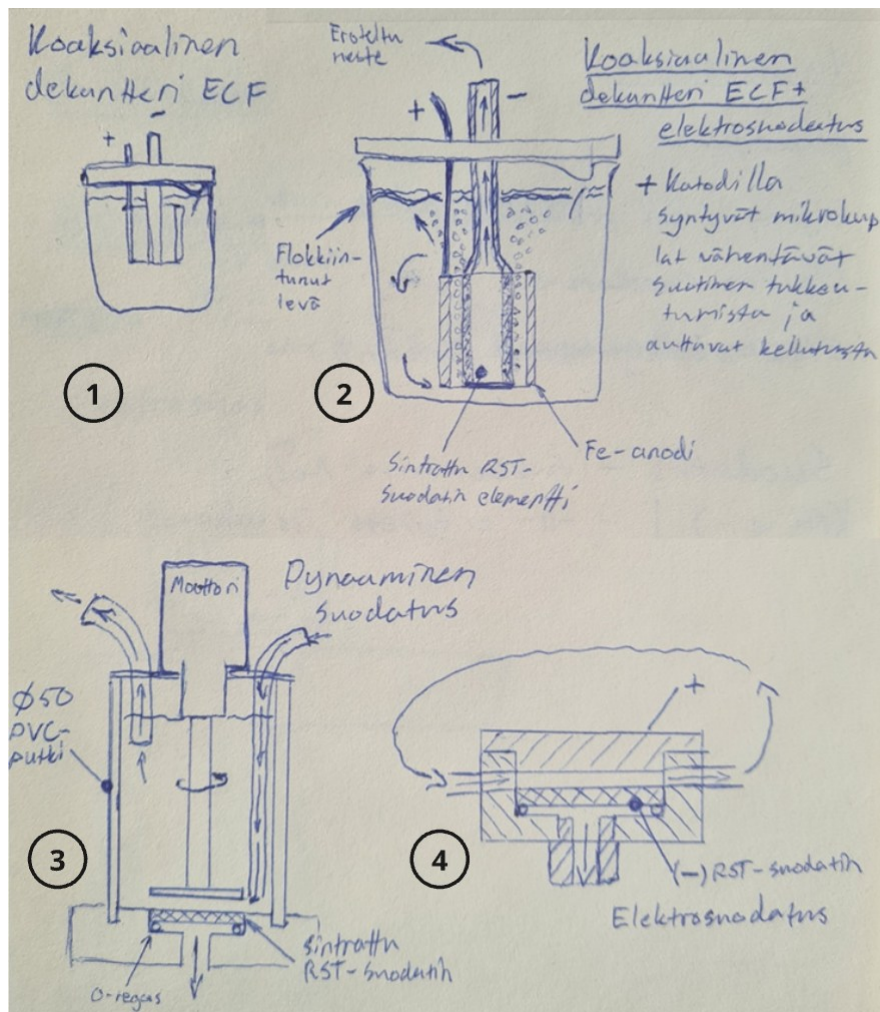 Koaksiaalinen
dekantteri ECF
+
-
1
Eroteltu
neste
+
-
Koaksiaalinen
dekantteri ECF +
elektrosuodatus
+ Katodilla
syntyvät mikrokup
lat vähentävät
suotimen tukkeu-
tumista ja
auttavat kellutusta
Flokkiin-
tunut
levä
2
Fe-anodi
Sintrattu RST-
suodatin elementti
Moottori
Dynaaminen
suodatus
Ø50
PVC-
putki
3
O-regas
Sintrattu
RST-suodatin
+
4
(-) RST-suodatin
Elektrosuodatus